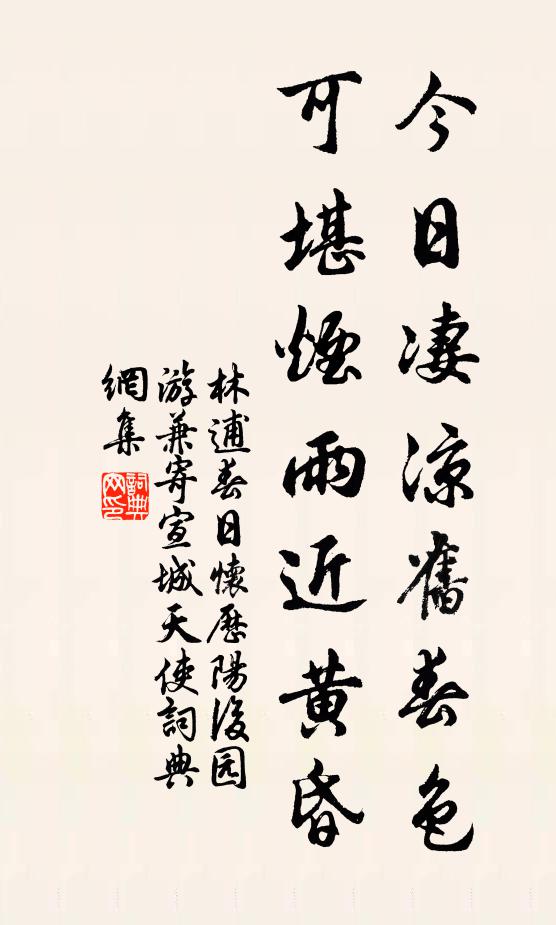 今日凄涼舊春色
可堪煙雨近黄昏
林逋春日懷歷陽後园
游兼寄宣城天使詞典
網集
詞典
网印